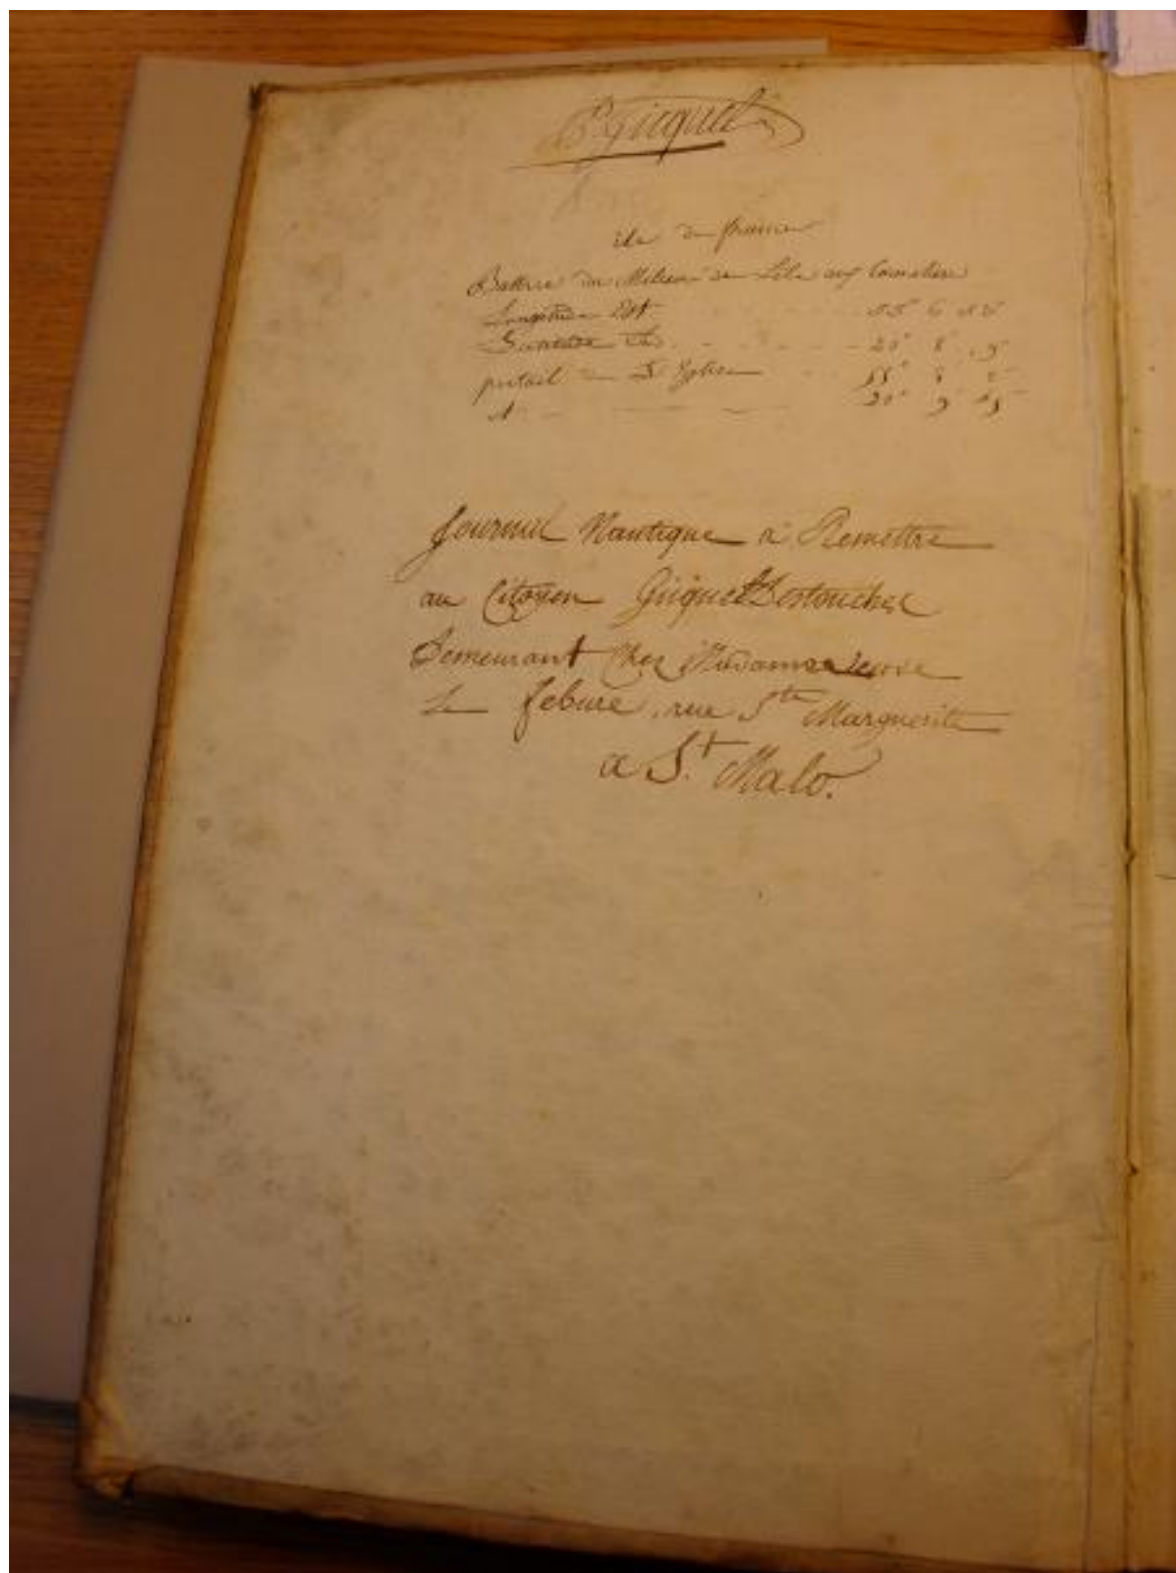 P Giquel
ile de france
Batterie du Milieu de L'ile aux Tonneliers
Longitude Est 55° 6
Latitude 20° 8
portail de L'Eglise 55° 8
20° 9 45
Journal Nautique à Remettre
au Citoyen Giquel Destouches
Demeurant Chez Madame veuve
Le febure, rue Ste Marguerite
a St Malo.